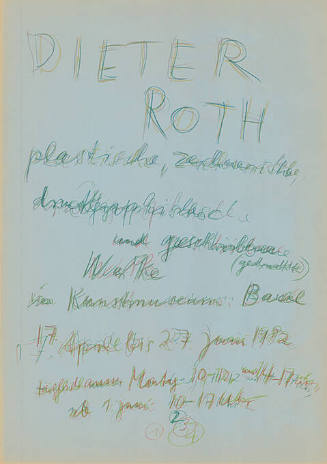 DIETER
ROTH
plastische, zeichnerische,
druckgraphische
und geschriebene
Werke (gedruckte)
im Kunstmuseum Basel
17. April bis 27. Juni 1972
täglich ausser Montag 10-12 und 14-17 Uhr,
ab 1. Juni 10-17 Uhr